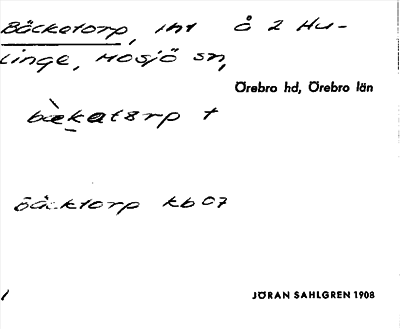 Bäcketorp, int å 2 Hu-
linge, Mosjö sn,
Örebro hd, Örebro län
bækatørp +
Bäcktorp kb 07
JÖRAN SAHLGREN 1908